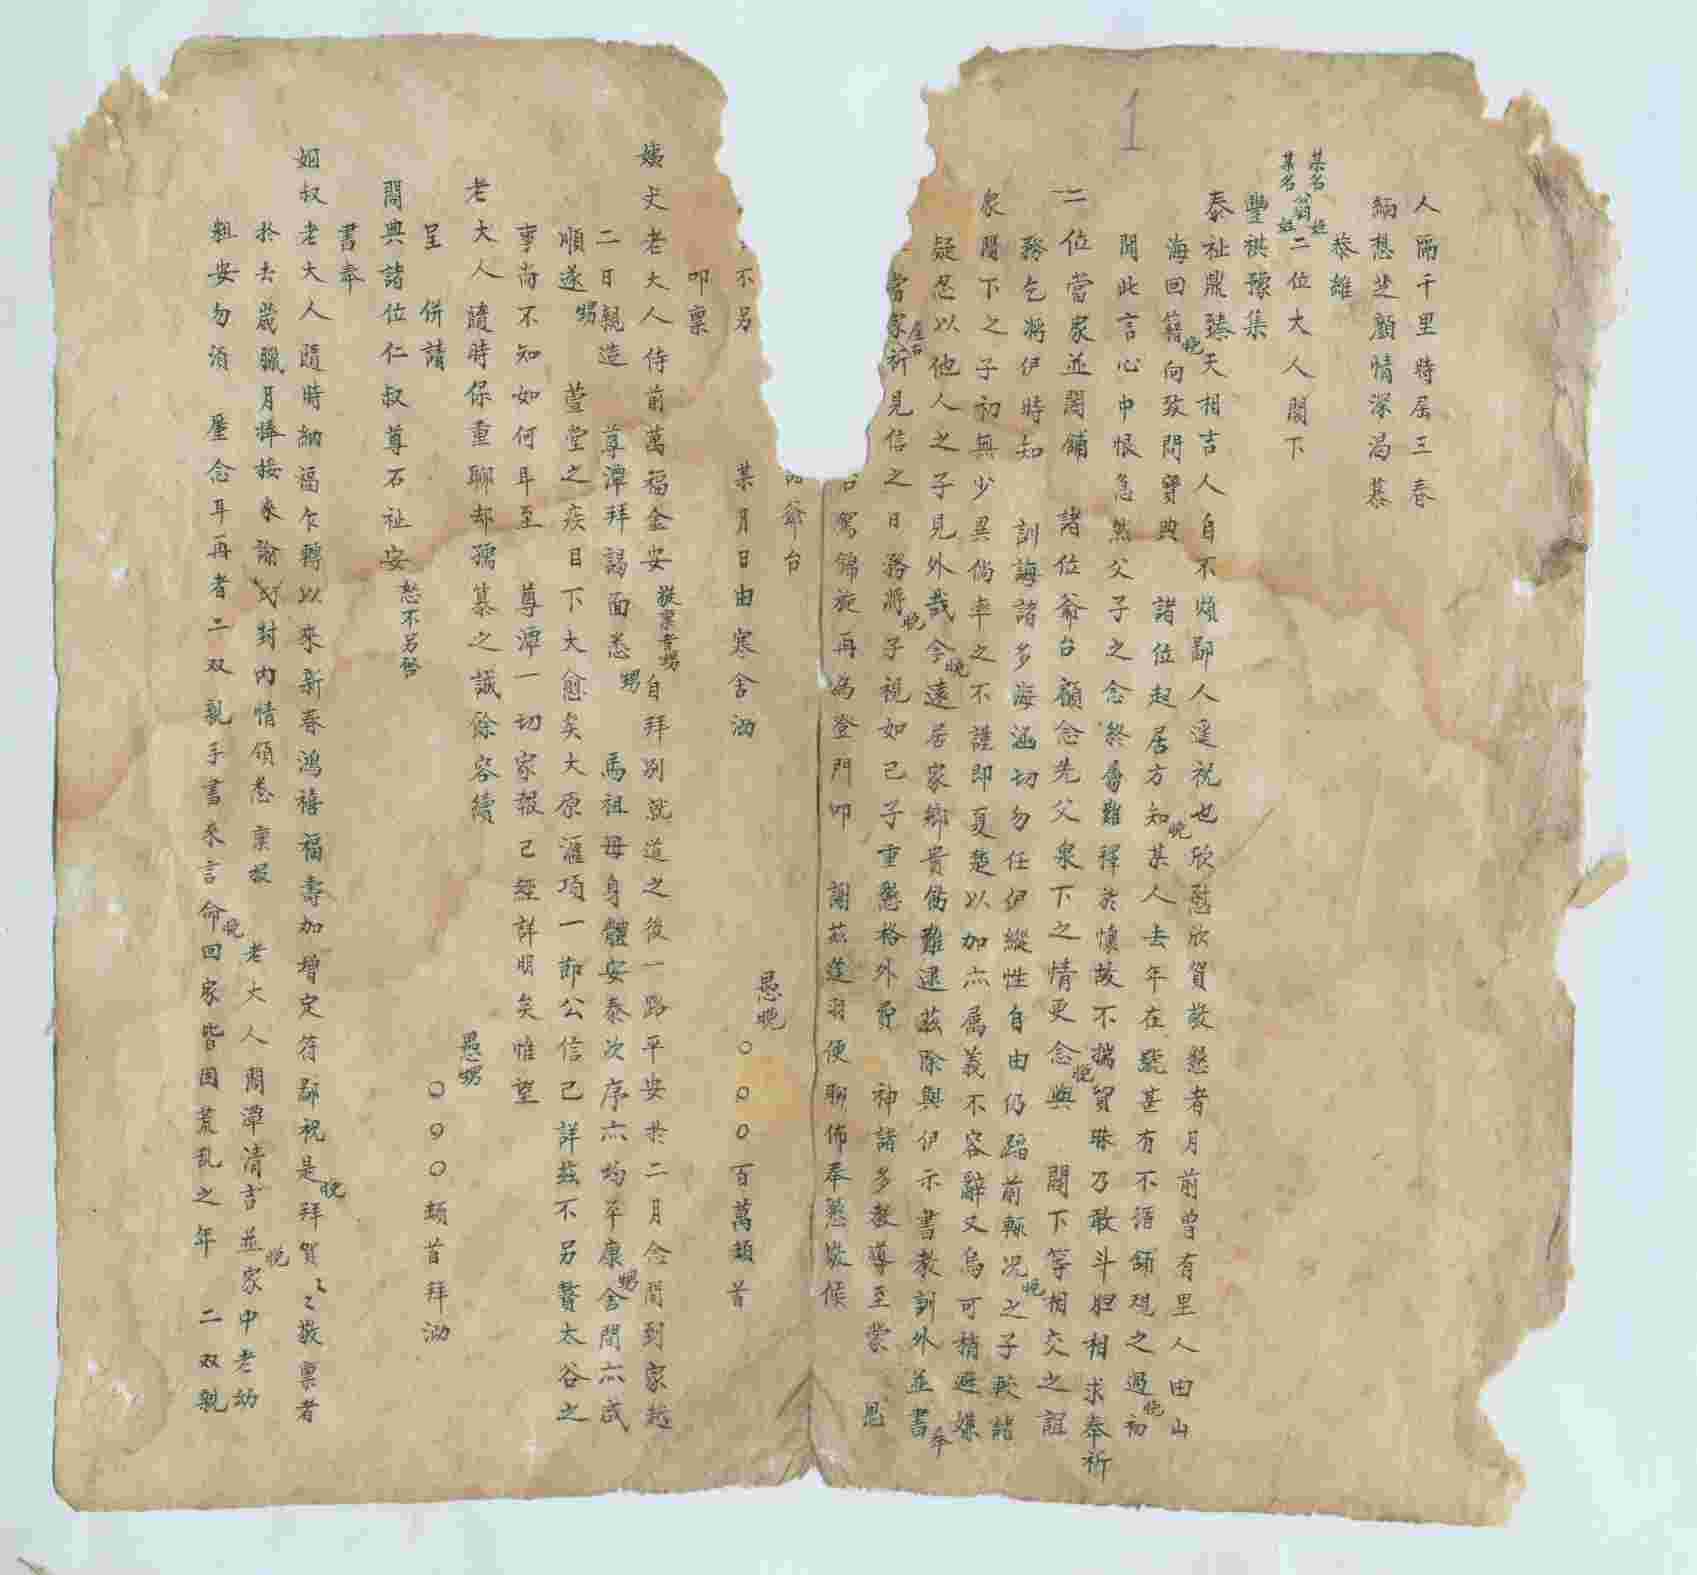 1
人隔千里時居三春
緬想芝顏情深渴慕
恭維
某名 某名 翁 姓 姓 二位大人閣下
豐祺豫集
泰祉鼎臻天相吉人自不煩鄙人遥祝也欣慰欣賀敬懇者月前曾有里人由山
海回籍晚向致問寶典 諸位起居方知晚某人去年在號甚有不語鋪規之過晚初
聞此言心中恨急然父子之念終屬難釋於懷故不揣冒昧乃敢斗胆相求奉祈
二位當家並閤鋪 諸位爺台顧念先父泉下之情更念晚與 閣下等相交之誼
務乞將伊時知 訓誨諸多海涵切勿任伊縱性自由仍蹈前轍况晚之子較諸
泉閣下之子初無少異倘率之不謹即夏楚以加亦屬義不容辭又烏可稍避嫌
疑忍以他人之子見外哉今晚遠居家鄉貴儒難逮茲除與伊示書教訓外並書奉
當家祈見信之日務將晚子視如己子重懇格外費 神諸多教導至蒙 恩
台駕錦旋再為登門叩 謝茲蓬羽便聊佈奉懇竢候
爺台
不另 某月日由寒舍泐 愚晚〇〇〇百萬頓首
叩禀
姨丈老大人侍前萬福金安敬禀者甥自拜别就道之後一路平安於二月念間到家越
二日親造 尊潭拜謁面悉甥 馬祖母身體安泰次序亦均平康甥舍間亦咸
順遂甥 萱堂之疾目下大愈矣大原滙項一節公信已詳茲不另贅太谷之
事尚不知如何耳至 尊潭一切家報已經詳明矣惟望
老大人隨時保重聊却孺慕之誠餘容續
呈 併請 愚甥〇〇〇頓首拜泐
閤典諸位仁叔尊石祉安恕不另啓
書奉
姻叔老大人隨時納福乍轉以來新春鴻禧福壽加增定符鄙祝是晚拜賀之敬禀者
於去歲臘月捧接來諭封內情領悉稟報 老大人閤潭清吉並晚家中老幼
粗安勿須 塵念耳再者二双親手書來言命晚回家皆因荒乱之年 二双親